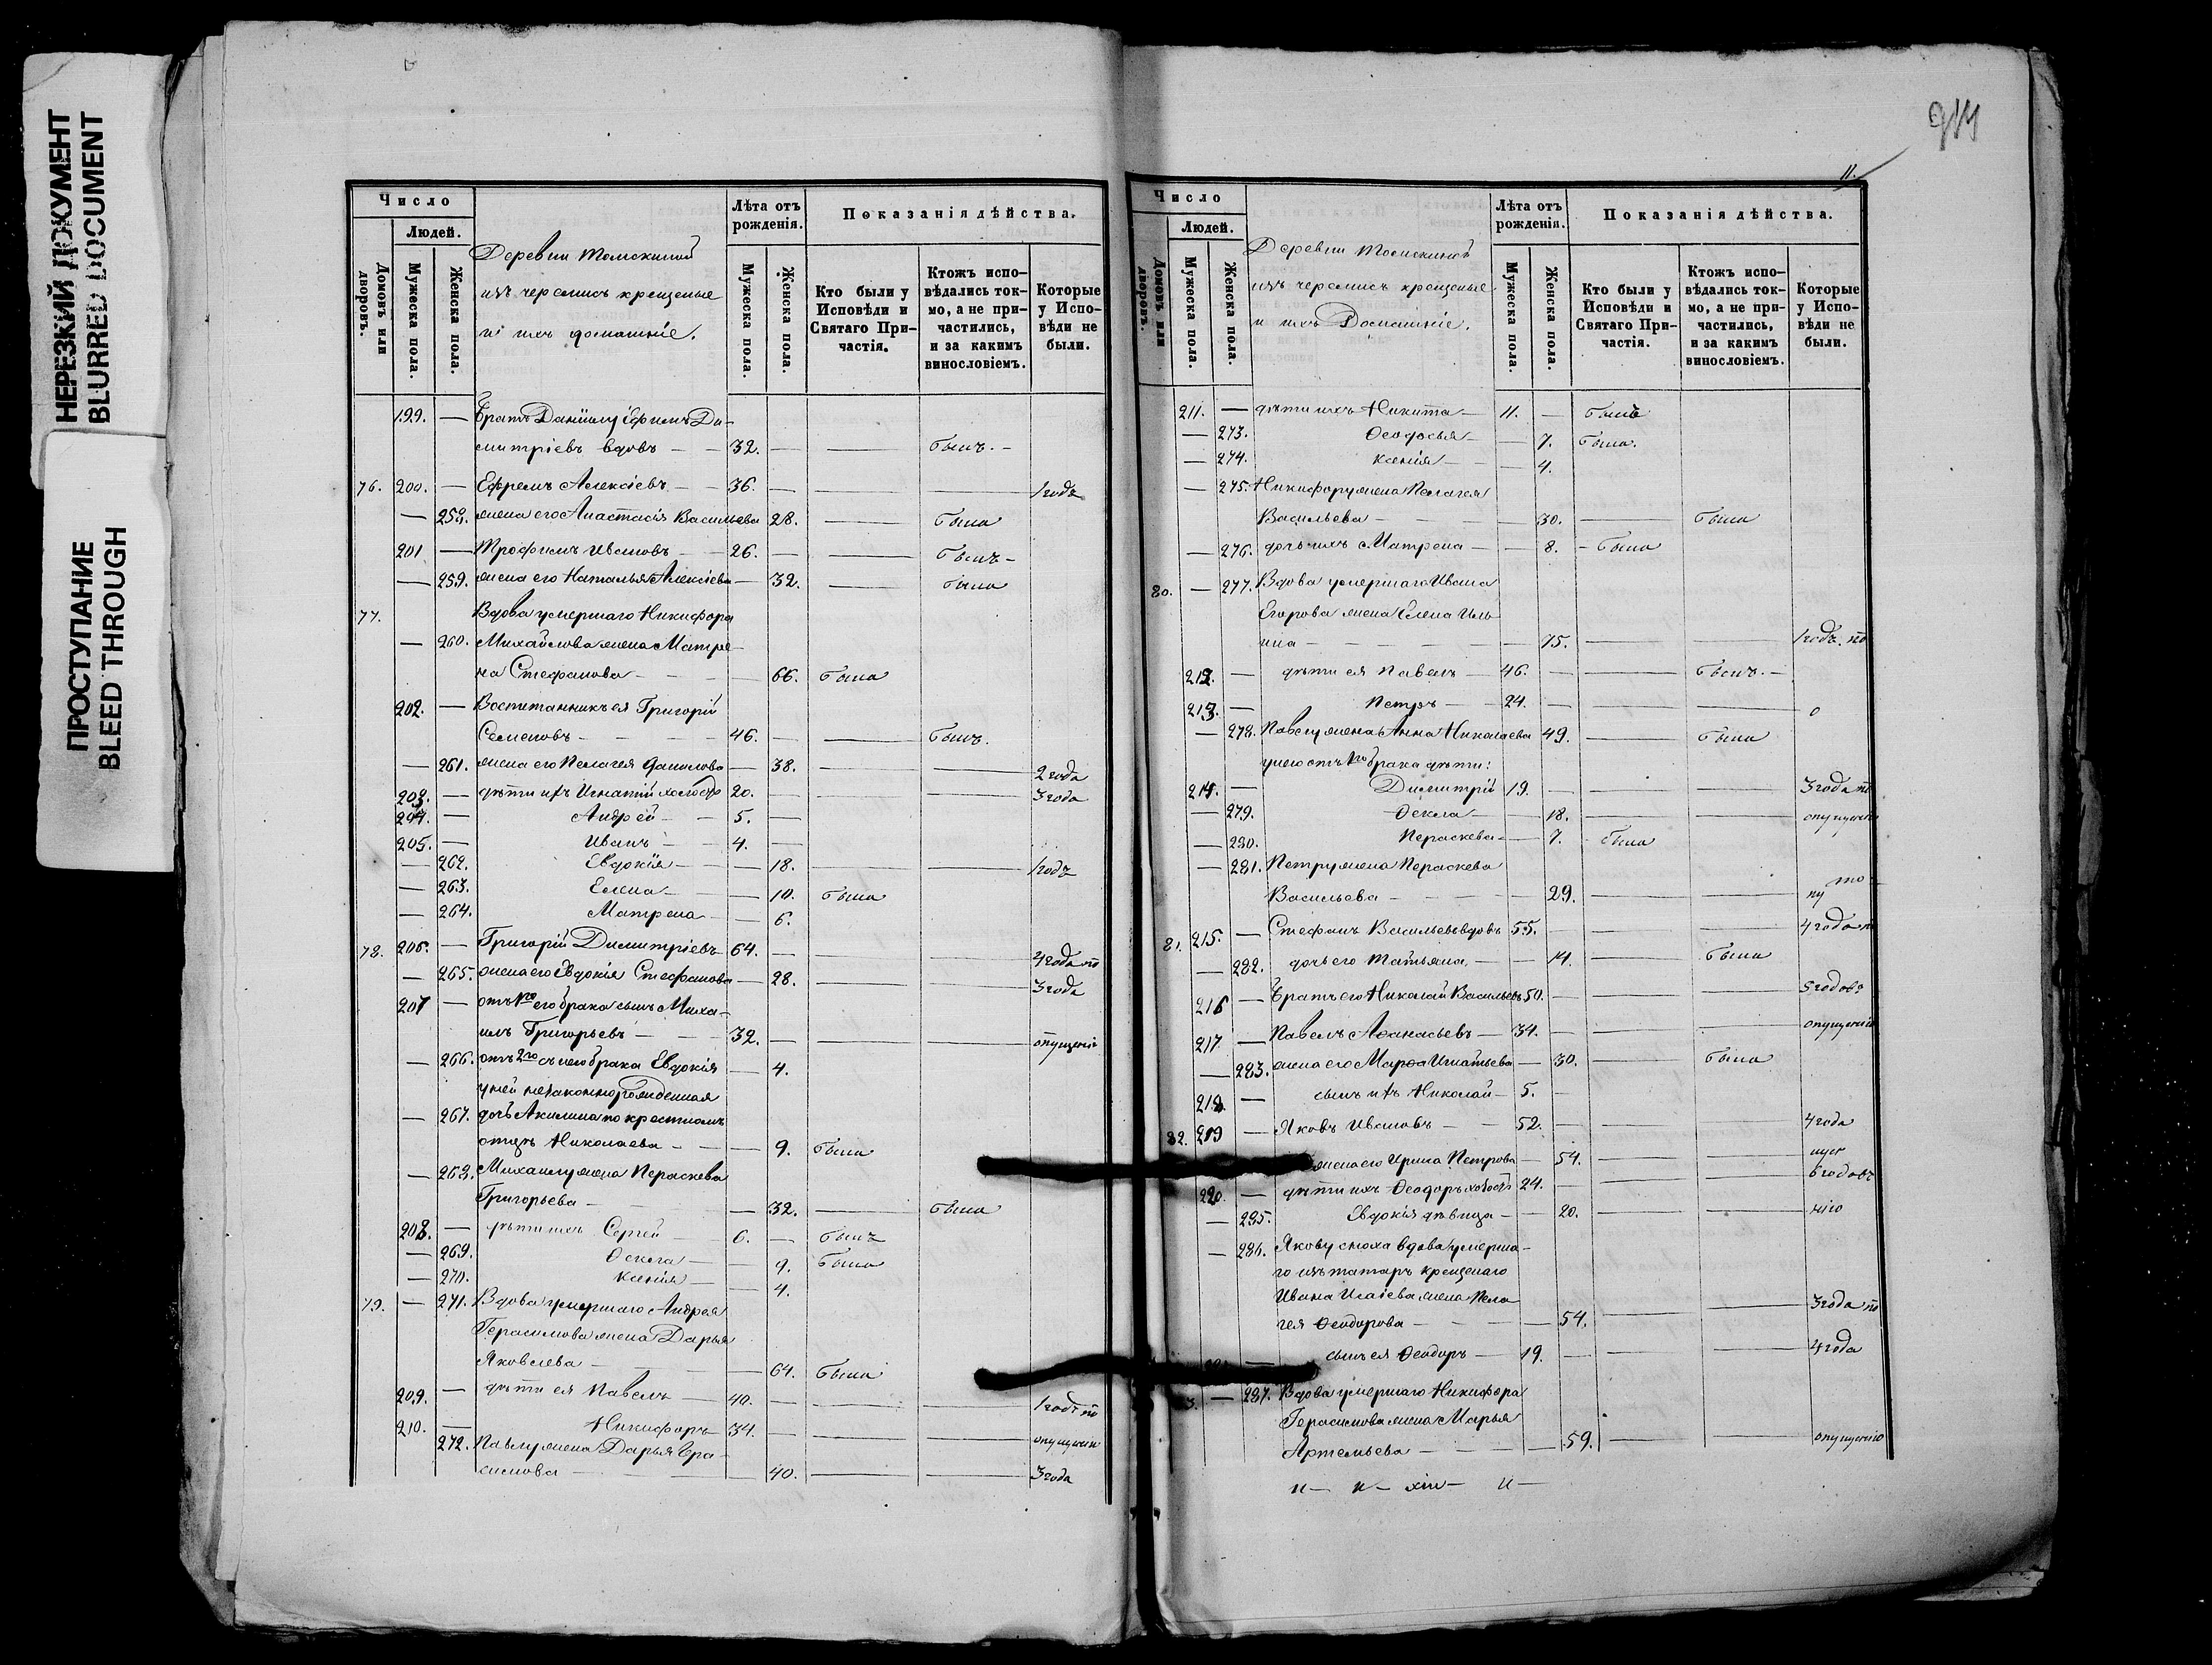 НЕРЕЗКИЙ ДОКУМЕНТ
BLURRED DOCUMENT
ПРОСТУПАНИЕ
BLEED THROUGH
Число
Людей.
Домовъ или дворовъ.
Мужеска пола.
Женска пола.
Деревни
изъ черемисъ крещеные
и ихъ домашніе.
Лѣта отъ рожденія.
Мужеска пола.
Женска пола.
Показанія дѣйства.
Кто были у Исповѣди и Святаго Причастія.
Ктожъ исповѣдались токмо, а не причастились, и за какимъ винословіемъ.
Которые у Исповѣди не были.
199. — Братъ Даніилу Ефимъ Ди-
митріевъ вдовъ — — 32. — — былъ. —
76. 200. — Ефремъ Алексіевъ — — 36. — — — 1 годъ
— 258. жена его Анастасія Васильева 28. — была
201 — Трофимъ Ивановъ — — 26. — — былъ —
— 259. жена его Наталья Алексіева — 32. — была
77. Вдова умершаго Никифора
— 260. Михайлова жена Матре-
на Стефанова — — — 66. была
202. — Воспитанникъ ея Григорій
Семеновъ — — — 46. — — былъ.
— 261. жена его Пелагея Данилова — 38. — — 2 года
203. — дѣти ихъ Игнатій холостъ 20. — — — 3 года
204. — Андрей — — 5. —
205. — Иванъ — — 4. —
— 262. Евдокія — — 18. — — 1 годъ
— 263. Елена — — 10. была
— 264. Матрена — — 6.
78. 206. — Григорій Димитріевъ 64. — — — 4 года по
— 265. жена его Евдокія Стефанова — 28. — — 3 года
207 — отъ 1го его брака сынъ Миха-
илъ Григорьевъ — 32. — — — опущенію
— 266. отъ 2го съ нею брака Евдокія — 4.
у ней незаконнорожденная
— 267. дочь Акилина по крестномъ
отцѣ Николаева — — — 9. была
— 268. Михаилу жена Параскева
Григорьева — — — 32. — была
208. — дѣти ихъ Сергей — 6. — былъ
— 269. Ѳекла — — 9. была
— 270. Ксенія — — 4.
79. — 271. Вдова умершаго Андрея
Герасимова жена Дарья
Яковлева — — — 64. была
209. — дѣти ея Павелъ — 40. — — — 1 годъ по
210. — Никифоръ — 34. — — — опущенію
272. Павлу жена Дарья Гера-
симова — — — 40. — — 3 года
11.
Число
Людей.
Домовъ или дворовъ.
Мужеска пола.
Женска пола.
Деревни
изъ черемисъ крещеные
и ихъ Домашніе.
Лѣта отъ рожденія.
Мужеска пола.
Женска пола.
Показанія дѣйства.
Кто были у Исповѣди и Святаго Причастія.
Ктожъ исповѣдались токмо, а не причастились, и за какимъ винословіемъ.
Которые у Исповѣди не были.
211. — дѣти ихъ Никита — 11. — былъ
— 273. Ѳеодосья — — 7. была.
— 274. Ксенія — — 4.
— 275. Никифору жена Пелагея
Васильева — — — 30. — была
— 276. дочь ихъ Матрена — — 8. — была
80. — 277. Вдова умершаго Ивана
Егорова жена Елена Иль-
ина — — — 75. — — 1 годъ. по
212. — дѣти ея Павелъ — 46. — — былъ. —
213. — Петръ — — 24. — — — о
— 278. Павлу жена Анна Николаева 49. — была
у него отъ 1го брака дѣти:
214. — Димитрій 19. — — — 3 года по
— 279. Ѳекла — — 18. — — опущенію
— 280. Параскева — — 7. была
— 281. Петру жена Параскева
Васильева — — — 29. — —
81. 215. — Стефанъ Васильевъ вдовъ 55. — — — 4 года по
— 282. дочь его Татьяна. — — 14. — была
216 — Братъ его Николай Васильевъ 50. — — — 5 годовъ
217 — Павелъ Аѳанасьевъ — 34. — — — опущенію
— 283. жена его Марѳа Игнатьева — 30. — была
218. — сынъ ихъ Николай — 5. —
82. 219 — Яковъ Ивановъ — — 52. — — — 4 года
жена его Ирина Петрова — 54. — —
220. — дѣти ихъ Ѳеодоръ холостъ 24. — — — 6 годовъ
— 285. Евдокія дѣвица — — 20. — — нію
— 286. Якову сноха вдова умерша-
го изъ татаръ крещенаго
Ивана Исаіева жена Пела-
гея Ѳеодорова — — — 54. — — 3 года по
— сынъ ея Ѳеодоръ — 19. — — — 4 года
3. — 287. Вдова умершаго Никифора
Герасимова жена Марья
Артемьева — — — 59. — — опущенію